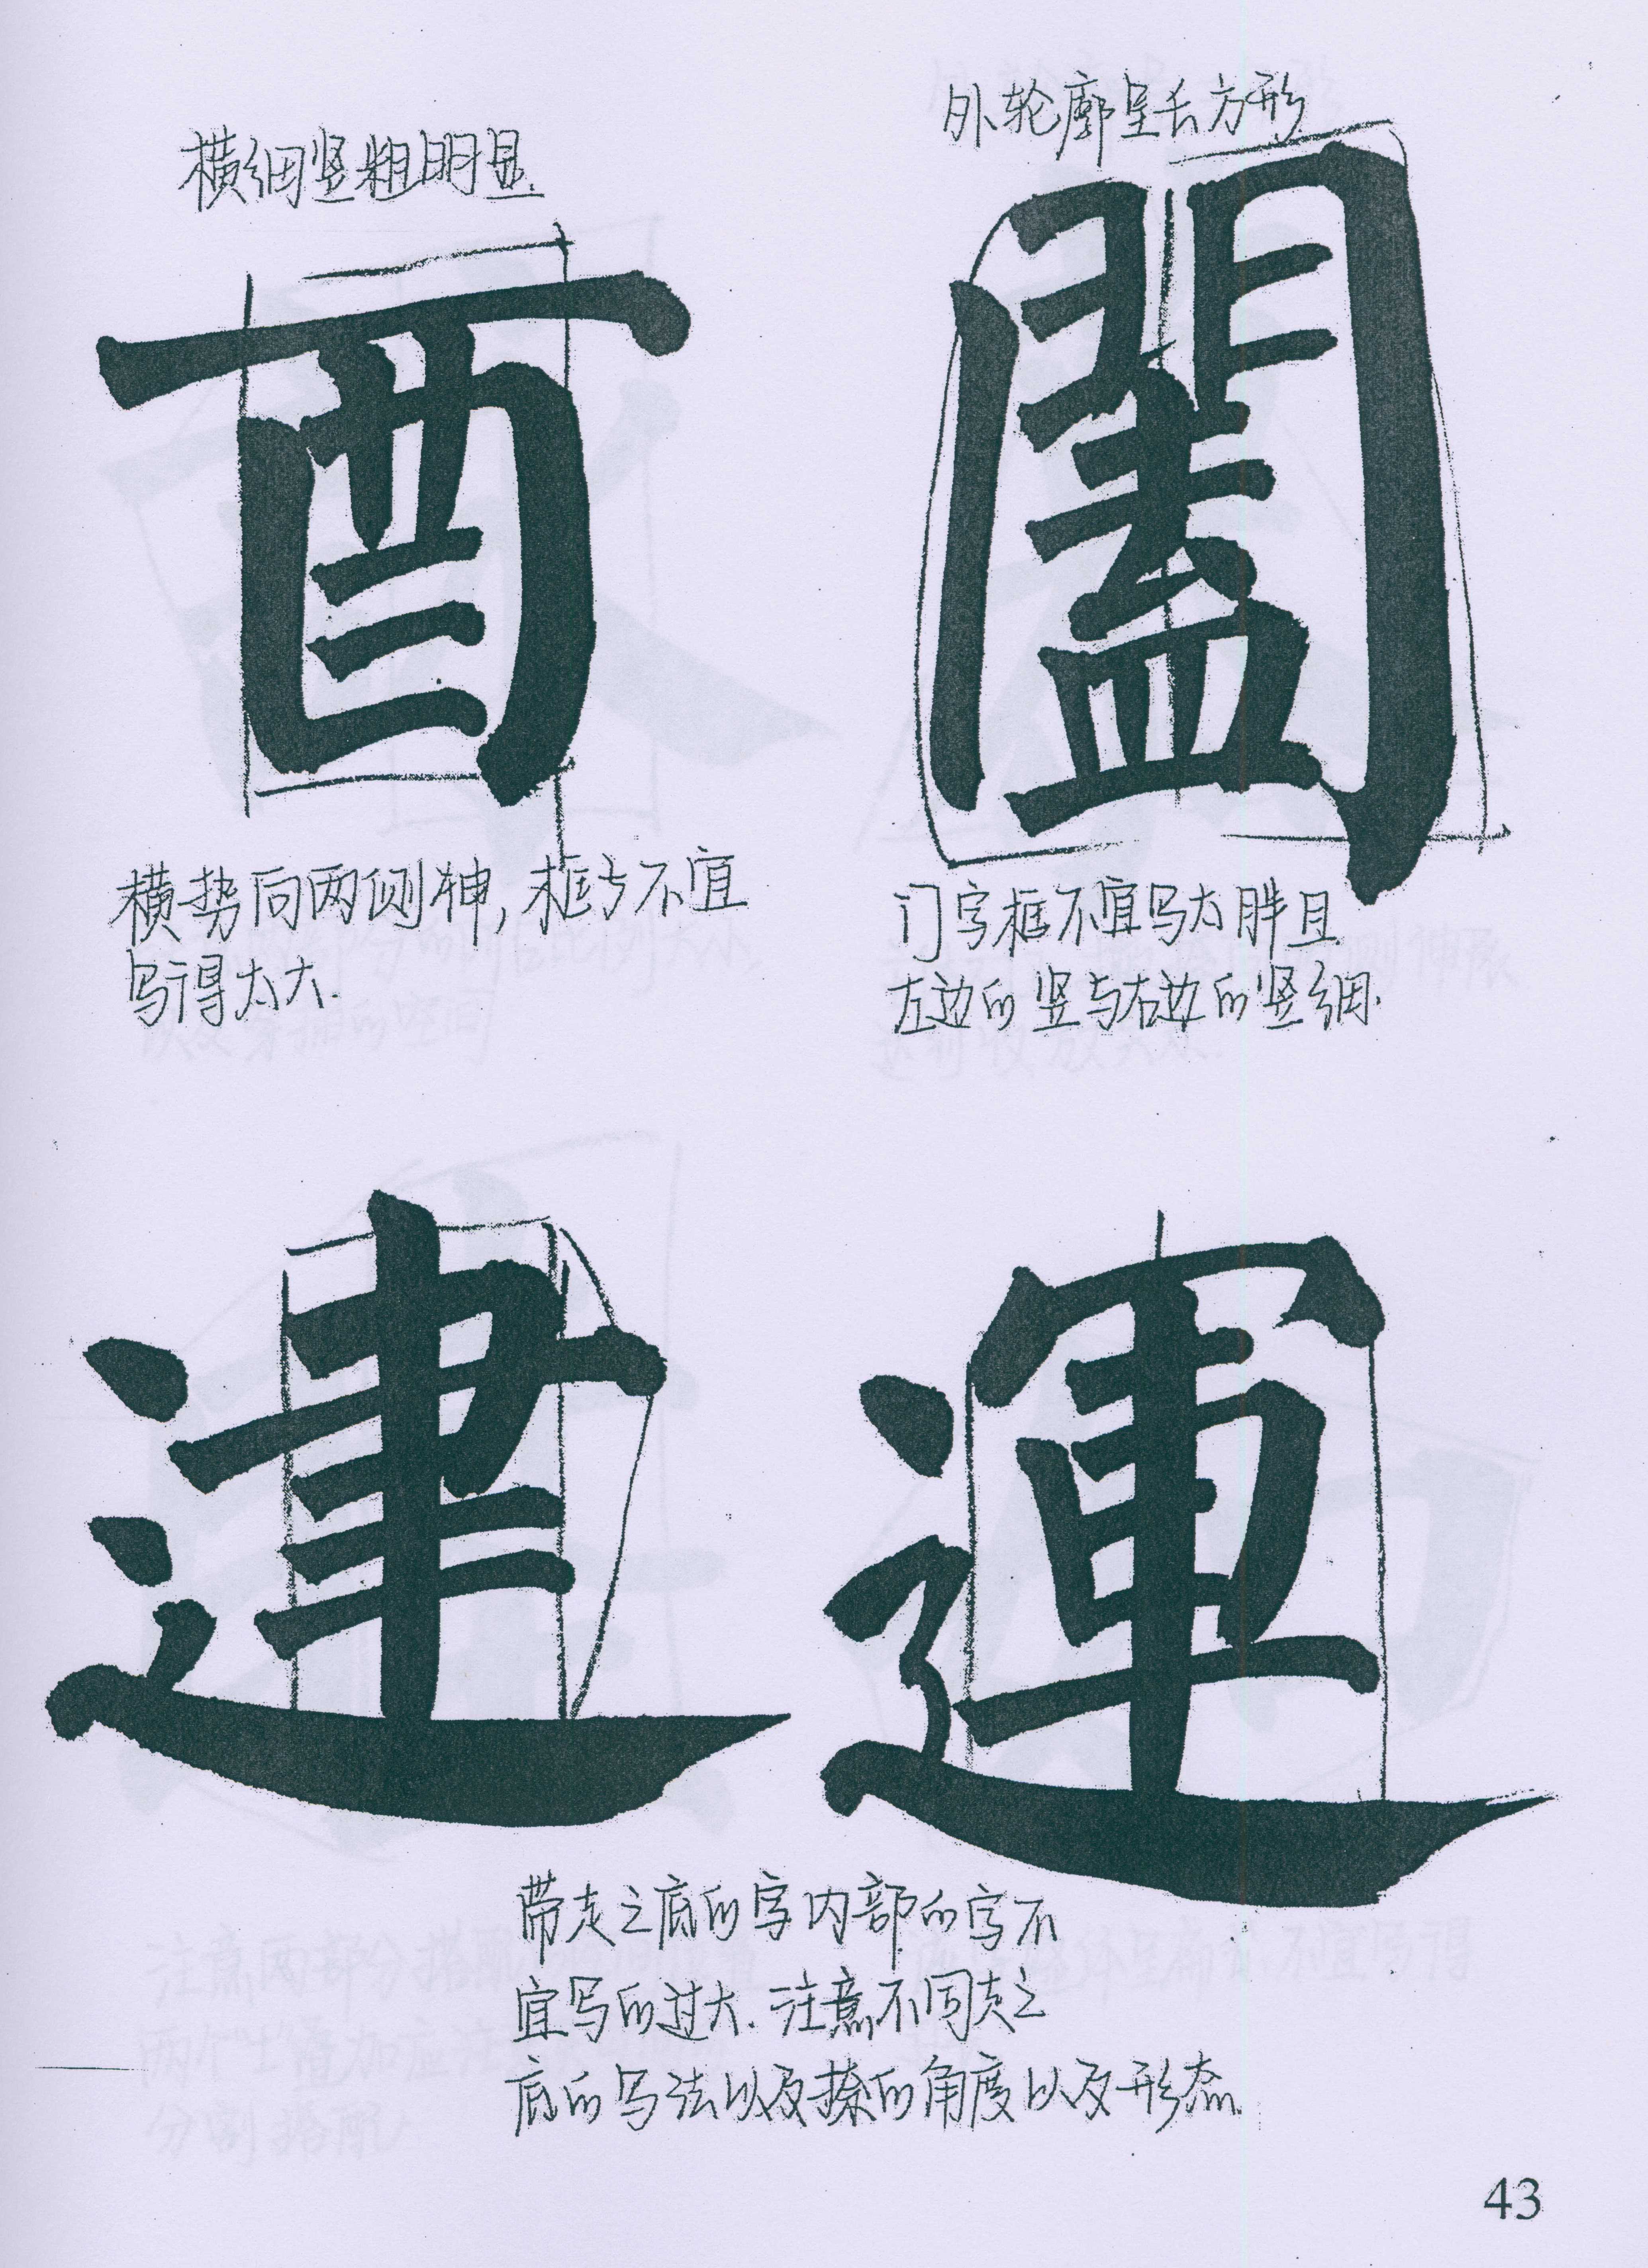 横细竖粗明显.
外轮廓呈长方形
酉 闔
横势向两侧伸,框不宜
写得太大.
门字框不宜写太胖且
左边的竖与右边的竖细.
建 運
带走之底的字内部的字不
宜写的过大.注意不同走之
底的写法以及捺的角度以及形态.
43